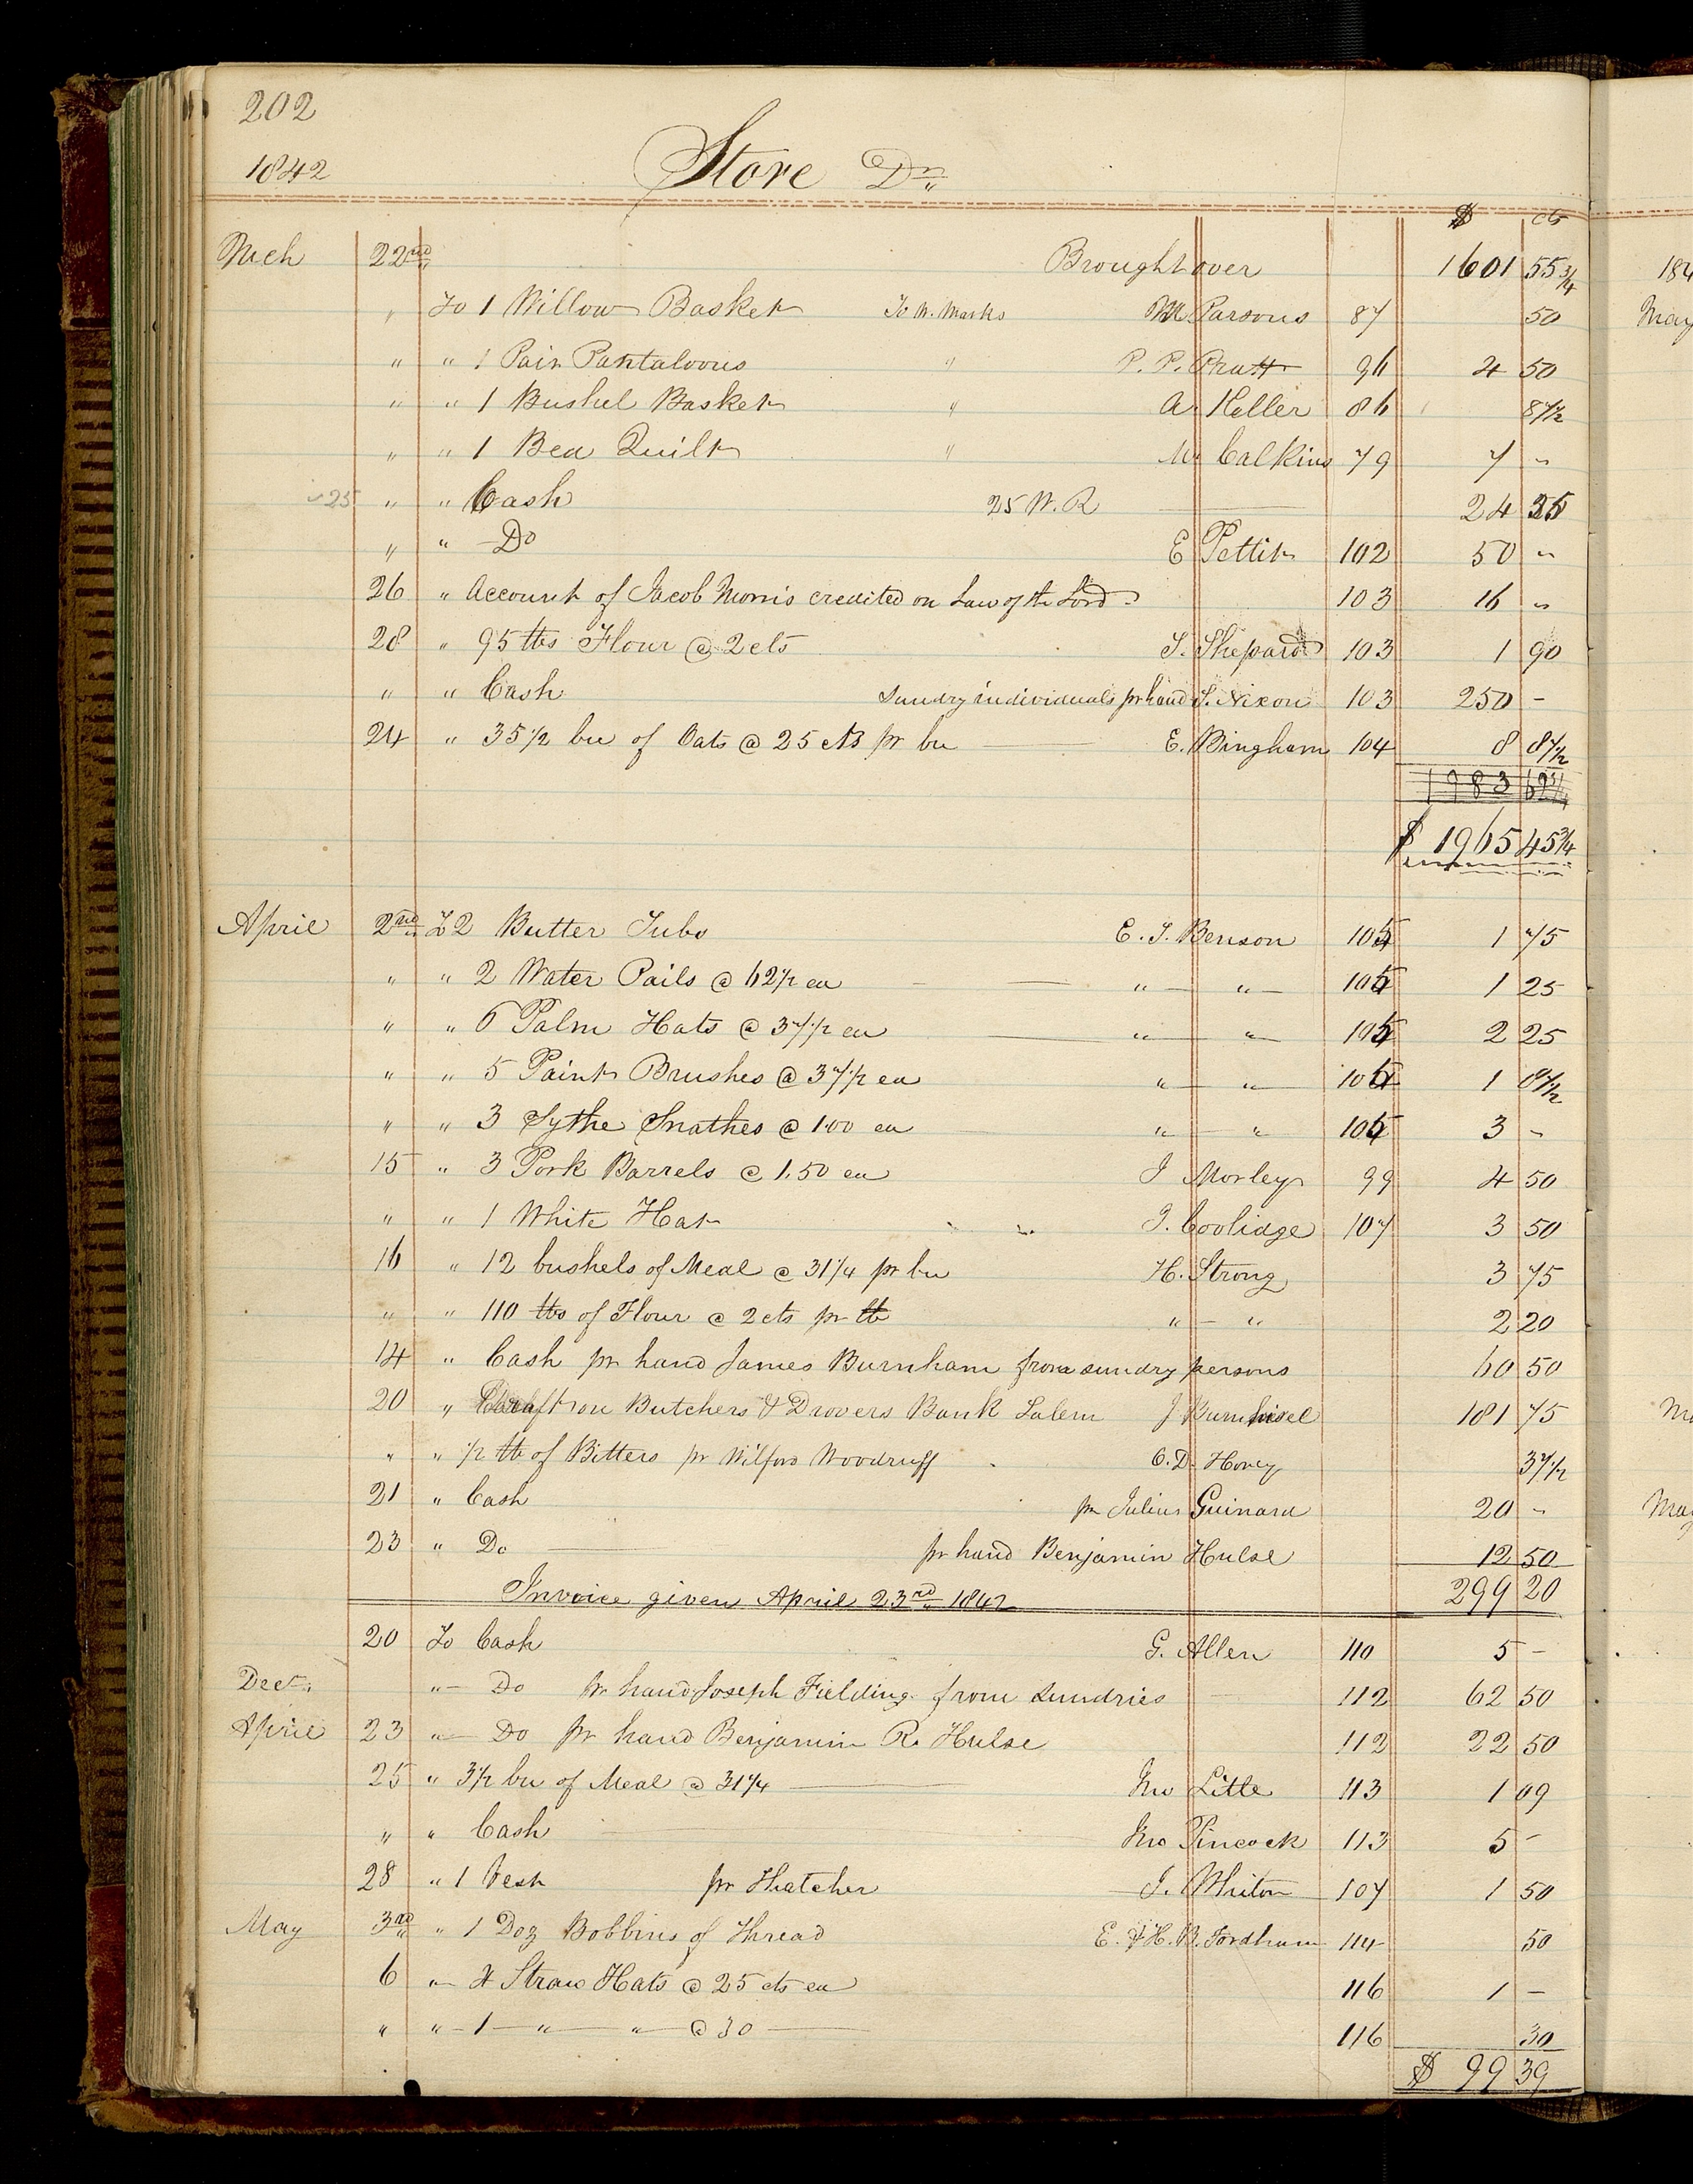 202
1842
Store Dr
$ cts
Mch 22nd Brought over 1601 55 3/4
" To 1 Willow Basket To W. Marks M Parsons 87 50
" " 1 Pair Pantaloons " P. P. Pratt 96 4 50
" " 1 Bushel Basket " A. Keller 86 87 1/2
" " 1 Bed Quilt " M Calkins 79 7 "
25 " " Cash 25 W. R 24 35
" " Do E Pettit 102 50 "
26 " Account of Jacob Morris credited on Law of the Lord 103 16 "
28 " 95 lbs Flour @ 2 cts S. Shepard 103 1 90
" " Cash Sundry individuals pr hand S. Nixon 103 250 -
24 " 35 1/2 bu of Oats @ 25 cts pr bu E. Bingham 104 8 87 1/2
1983
$ 1965 45 3/4
April 2nd To 2 Butter Tubs E. T. Benson 105 1 75
" " 2 Water Pails @ 62 1/2 ea " " 105 1 25
" " 6 Palm Hats @ 37 1/2 ea " " 105 2 25
" " 5 Paint Brushes @ 37 1/2 ea " " 105 1 87 1/2
" " 3 Sythe Snathes @ 1.00 ea " " 105 3 "
15 " 3 Pork Barrels @ 1.50 ea I Morley 99 4 50
" " 1 White Hat J. Coolidge 107 3 50
16 " 12 bushels of Meal @ 31 1/4 pr bu H. Strong 3 75
" " 110 lbs of Flour @ 2 cts pr lb " " 2 20
14 " Cash pr hand James Burnham from sundry persons 60 50
20 " Draft on Butchers & Drovers Bank Salem J Burnhisel 181 75
" " 1/2 lb of Bitters pr Wilford Woodruff O. D. Hovey 37 1/2
21 " Cash pr Julius Guinard 20 "
23 " Do pr hand Benjamin Hulse 12 50
299 20
Invoice given April 23rd 1842
20 To Cash G. Allen 110 5 -
Dect. " Do pr hand Joseph Fielding from Sundries 112 62 50
April 23 " Do pr hand Benjamin R. Hulse 112 22 50
25 " 3 1/2 bu of Meal @ 31 1/4 Jno Little 113 1 09
" " Cash Jno Pincock 113 5 -
28 " 1 Vest pr Thatcher J. Whiton 107 1 50
May 3rd " 1 Doz Bobbins of Thread E. & H. B. Fordham 114 50
6 " 4 Straw Hats @ 25 cts ea 116 1 -
" " 1 " " @ 30 116 30
$ 99 39
184
May